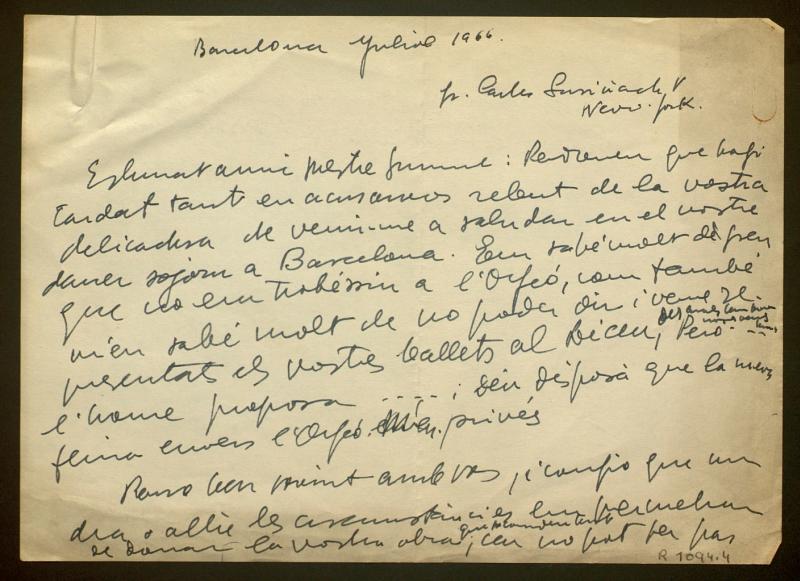 Barcelona Juliol 1966.
Sr. Carles Surinach
New-York.
Estimat amic mestre : Perdoneu que hagi
tardat tant en acusar-vos rebut de la vostra
delicadesa de venir-me a saludar en el vostre
darrer sojorn a Barcelona. Em sabé molt de greu
que no em trobéssin a l'Orfeó, com també
m'en sabé molt de no poder dir i veure re-
presentats els vostres ballets al Liceu, Però
l'home proposa .... i déu disposà que la meva
feina envers l'Orfeó m'en privés
Penso ben sovint amb vos, i confio que un
dia o altre les circumstàncies em permetran
de donar la vostra obra, cen no pot per pas
R 1094.4